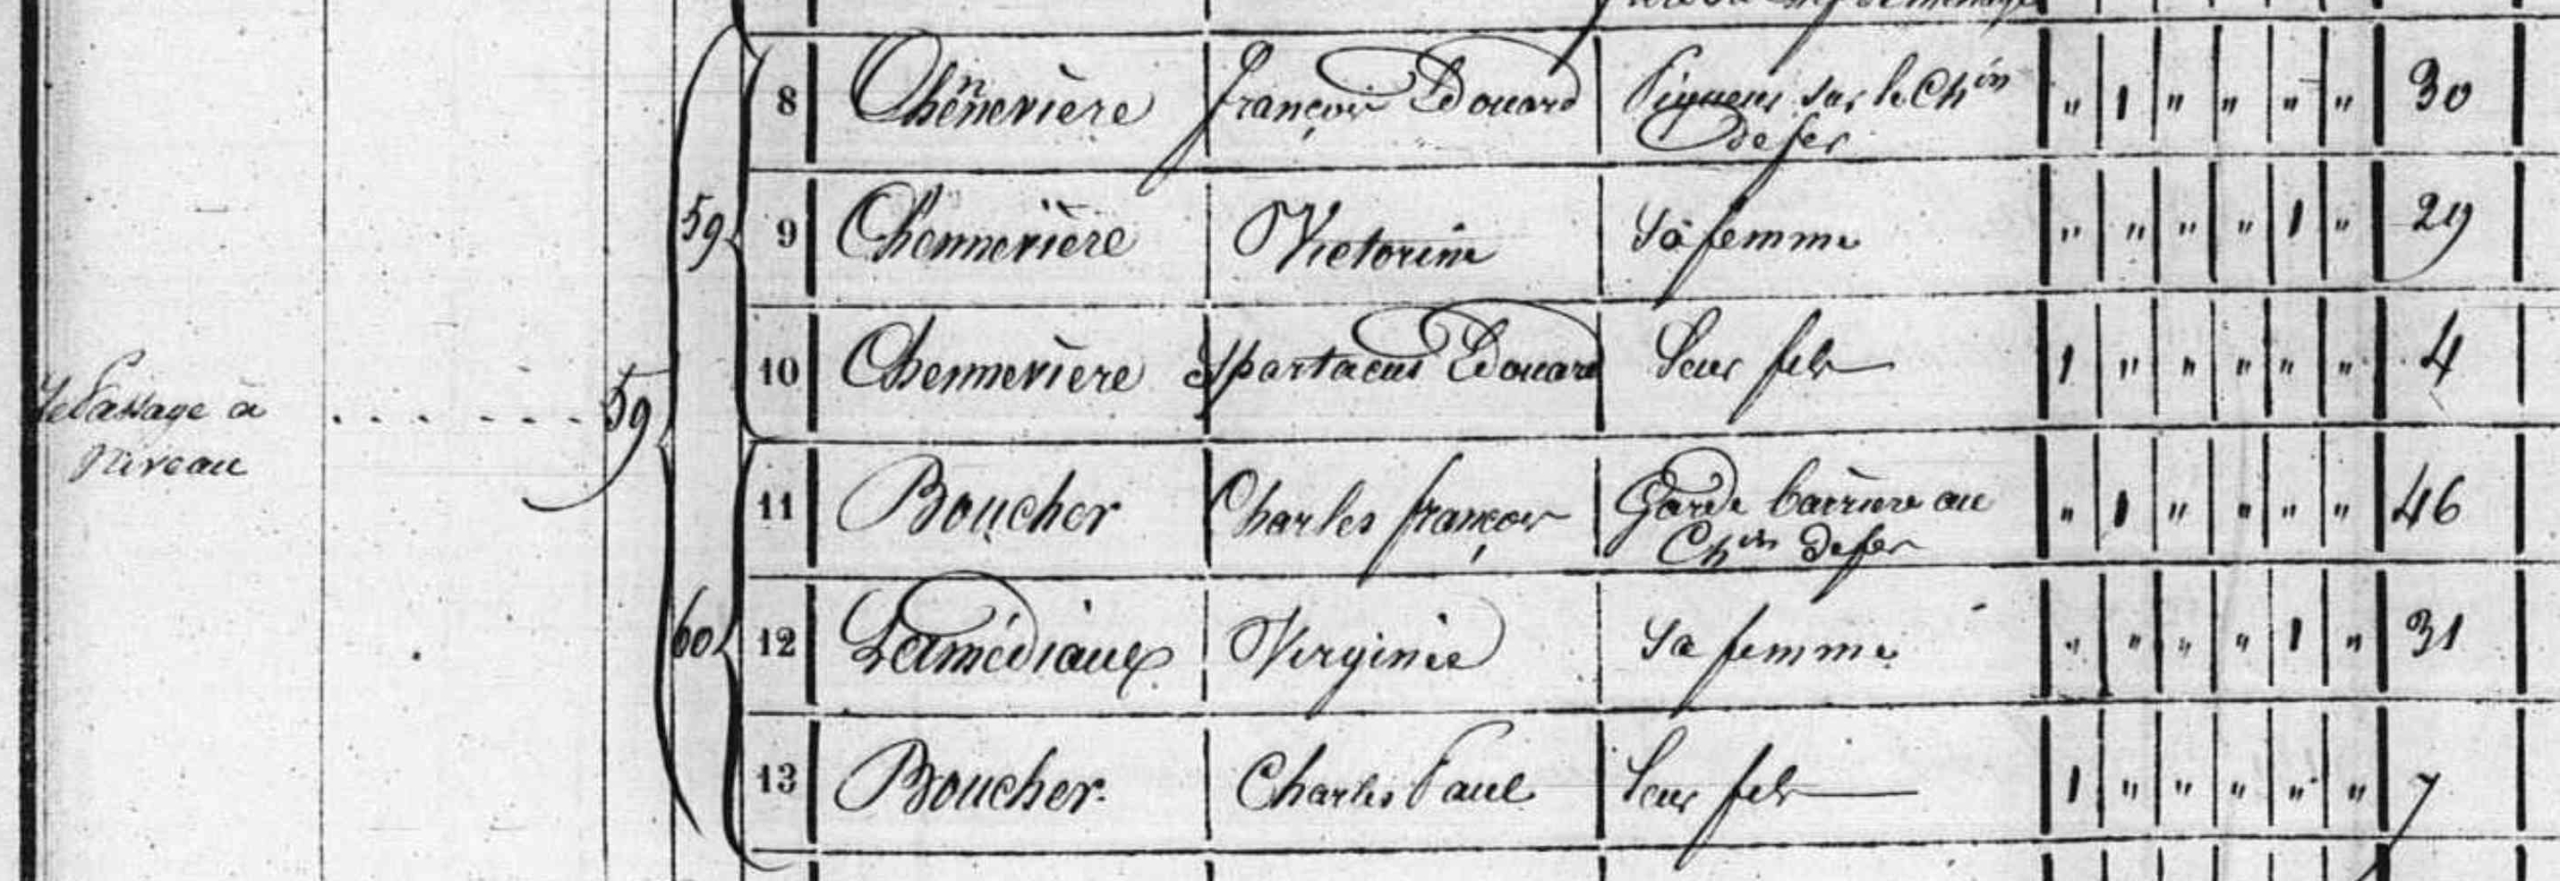 8 Chennevière François Edouard Piqueur sur le Chin de fer " 1 " " " " 30
59 9 Chennevière Victorine Sa femme " " " " 1 " 29
10 Chennevière Spartacus Edouard Leur fils 1 " " " " " 4
Le Passage à Niveau . . . . . . 59
11 Boucher Charles françois Garde barrière au Chin de fer " 1 " " " " 46
60 12 Lamédiaux Virginie Sa femme " " " " 1 " 31
13 Boucher Charles Paul Leur fils 1 " " " " " 7